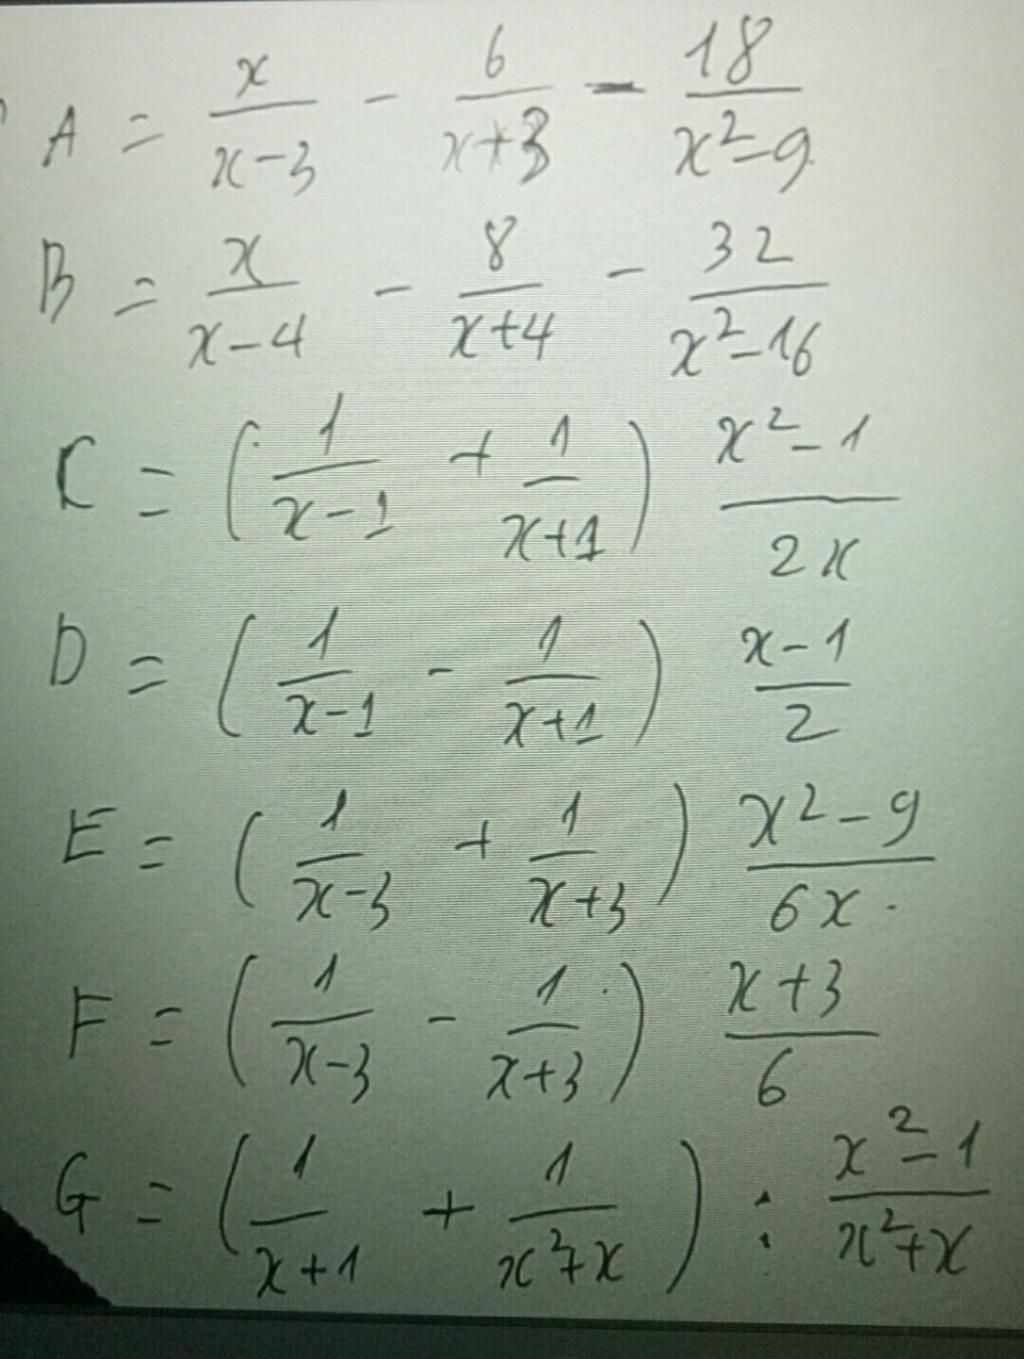 A = x/(x-3) - 6/(x+3) - 18/(x²-9)
B = x/(x-4) - 8/(x+4) - 32/(x²-16)
C = (1/(x-1) + 1/(x+1)) (x²-1)/(2x)
D = (1/(x-1) - 1/(x+1)) (x-1)/2
E = (1/(x-3) + 1/(x+3)) (x²-9)/(6x)
F = (1/(x-3) - 1/(x+3)) (x+3)/6
G = (1/(x+1) + 1/(x²+x)) : (x²-1)/(x²+x)